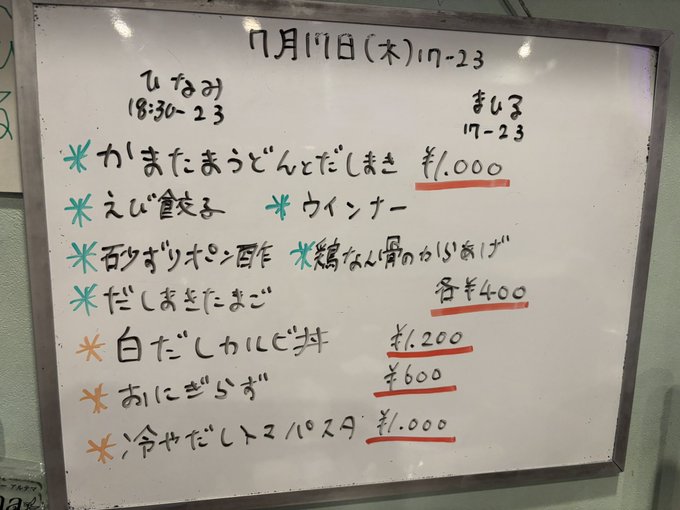 7月17日(木)17-23
ひなみ
18:30-23
まひる
17-23
*かまたまうどんとだしまき ¥1.000
*えび餃子 *ウインナー
*砂ずりポン酢 *鶏なん骨のからあげ
*だしまきたまご 各¥400
*白だしカルビ丼 ¥1.200
*おにぎらず ¥600
*冷やだしトマパスタ ¥1.000
アルテマ